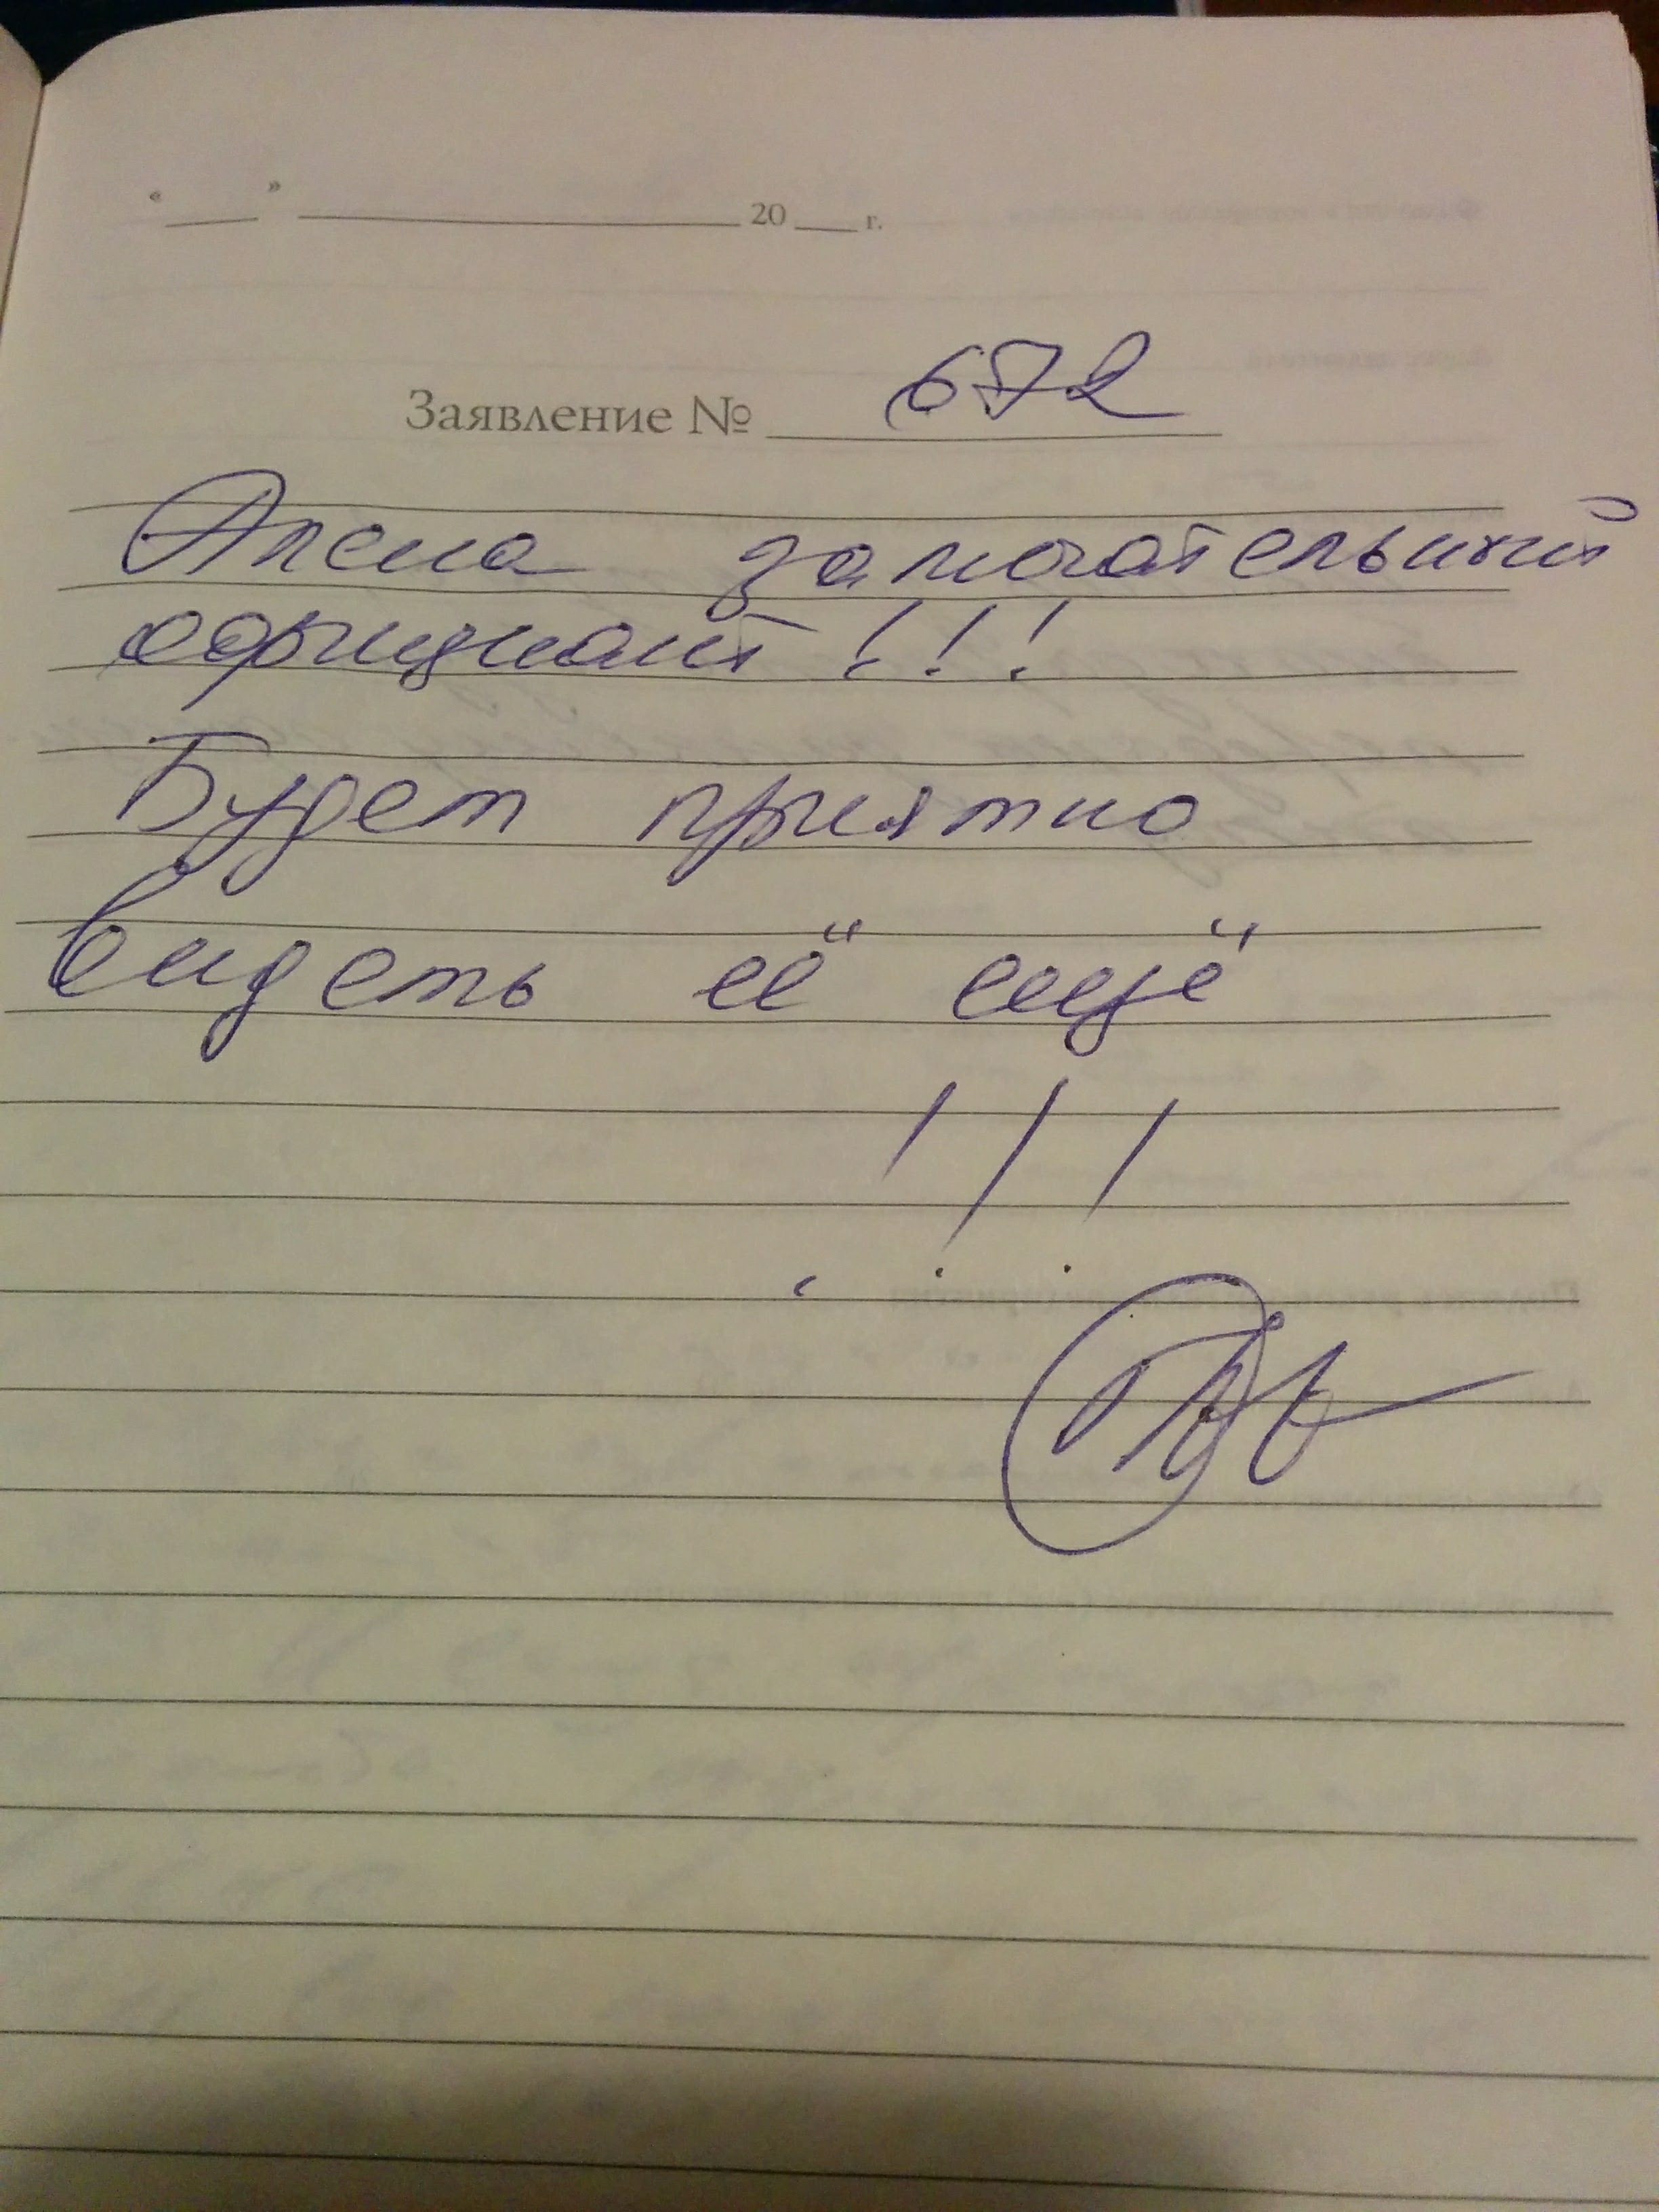 « ___ » ___ 20 ___ г.
Заявление № 672
Алена замечательный
официант!!!
Будет приятно
видеть её ещё
!!!